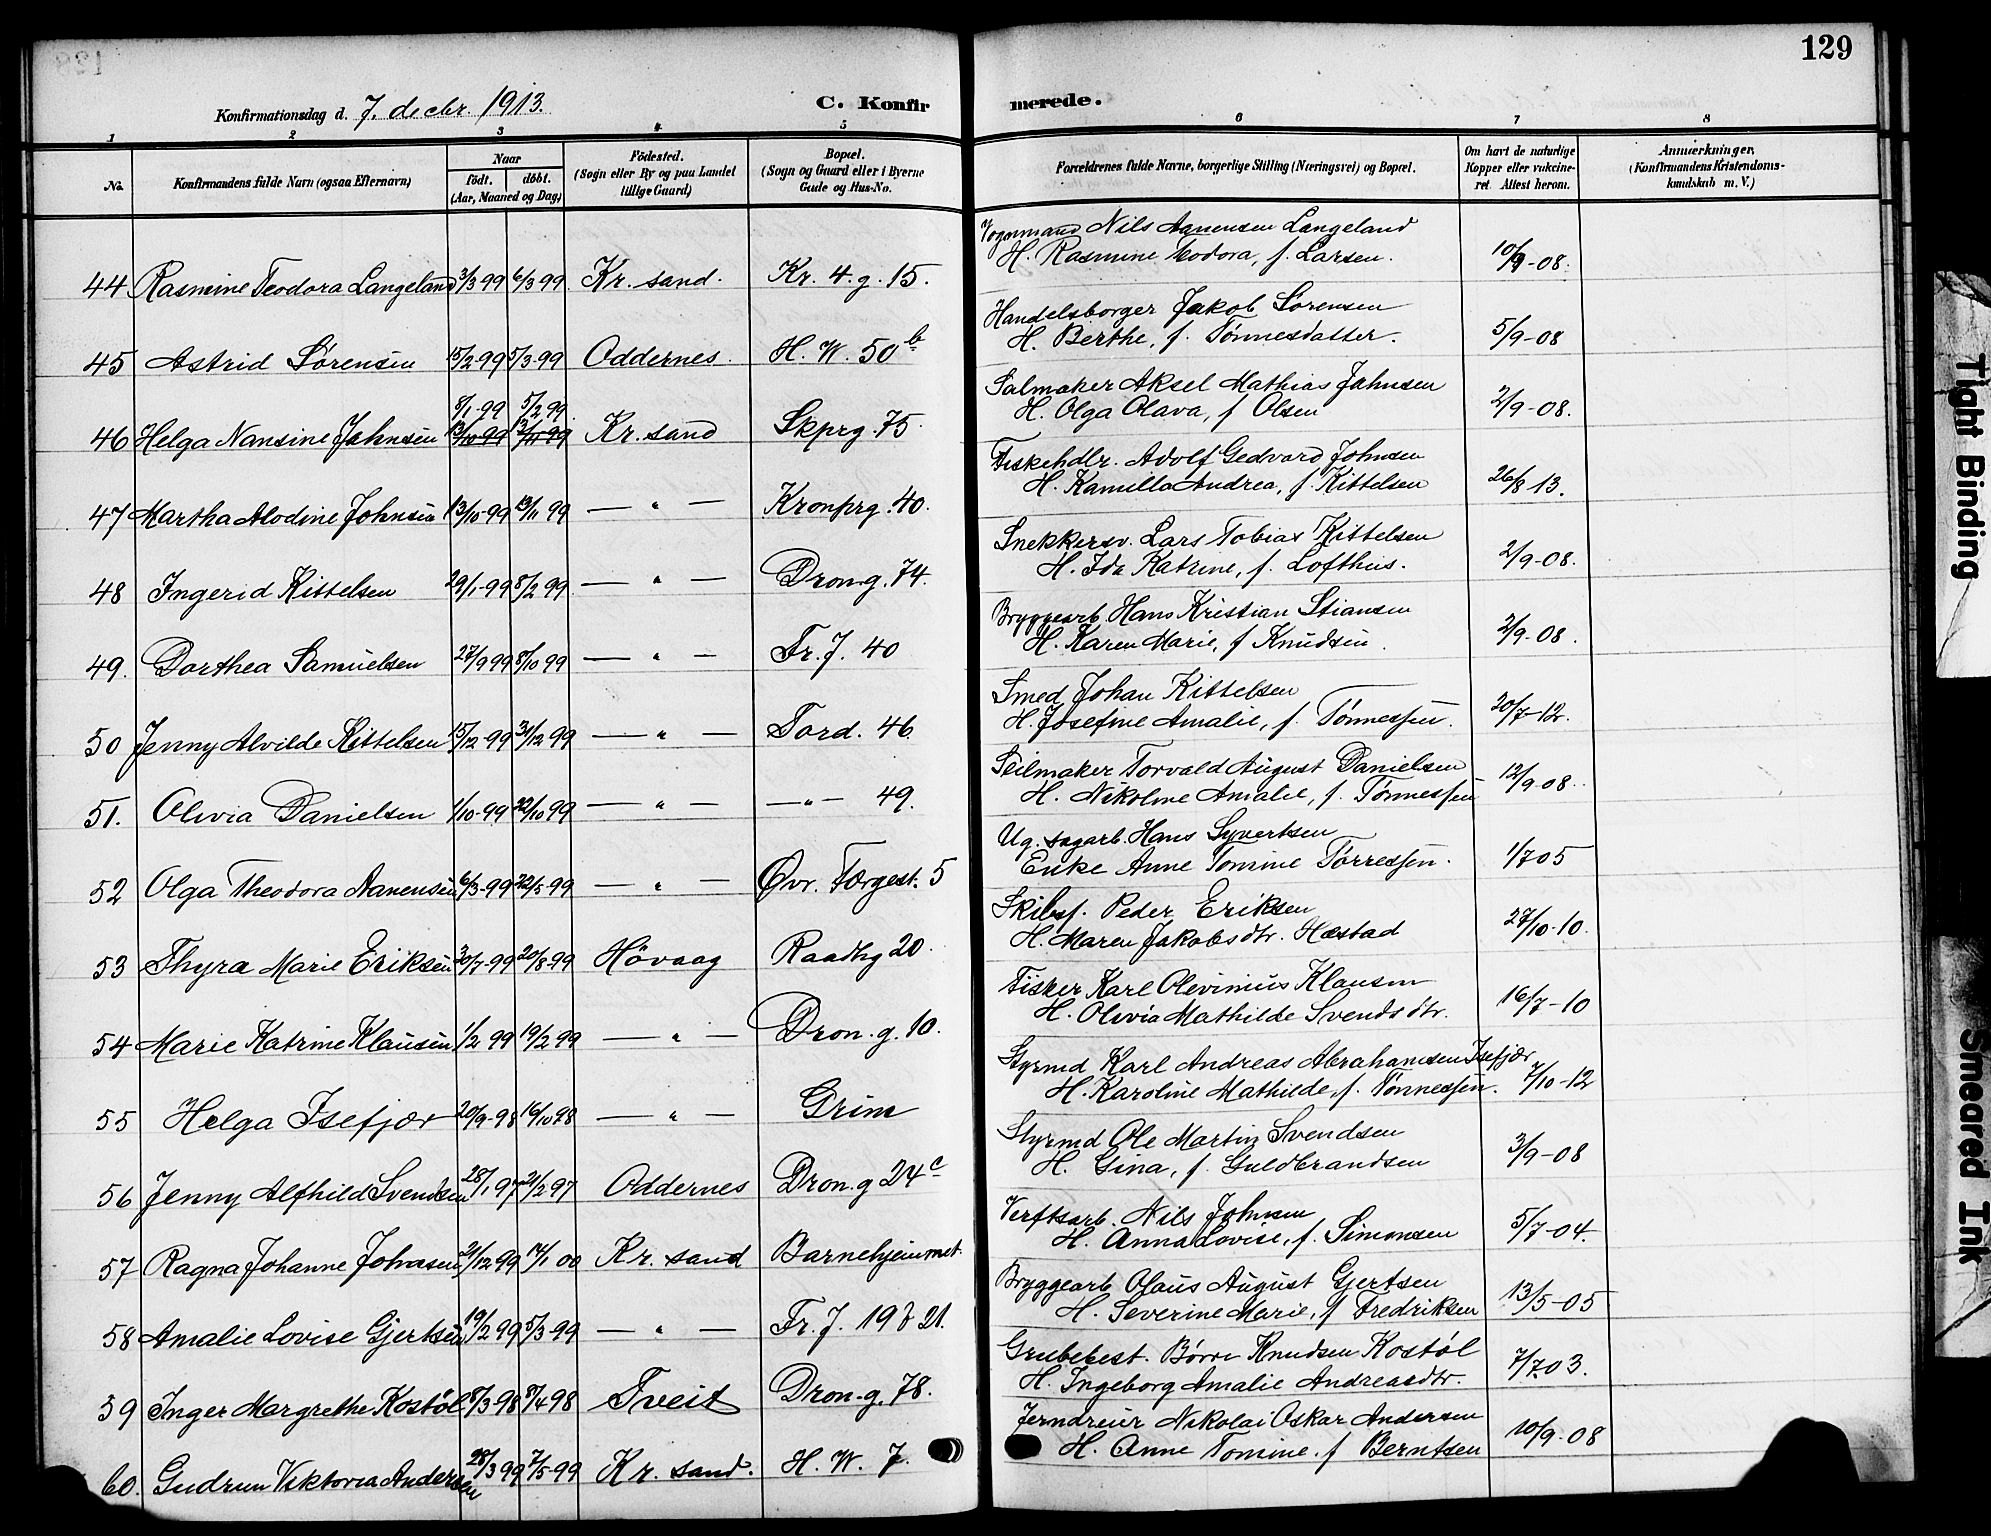 129
Konfirmationsdag d. 7. decbr. 1913.
C. Konfirmerede.
1 2 3 4 5 6 7 8
No.
Konfirmandens fulde Navn (ogsaa Efternavn)
Naar
födt. döbt.
(Aar, Maaned og Dag)
Födested.
(Sogn eller By og paa Landet
tillige Gaard)
Bopæl.
(Sogn og Gaard eller i Byerne
Gade og Hus-No.
Forældrenes fulde Navne, borgerlige Stilling (Næringsvei) og Bopæl.
Om havt de naturlige
Kopper eller vakcine-
ret. Attest herom.
Anmærkninger.
(Konfirmandens Kristendoms-
kundskab m. V.)
Vognmand Nils Aanensen Langeland
H. Rasmine Teodora, f. Larsen. 10/9-08.
44 Rasmine Teodora Langeland 3/3 99 6/3 99 Kr. sand. Kr. 4. g. 15.
Handelsborger Jakob Sørensen
H. Berthe, f. Tønnesdatter. 5/9-08
45 Astrid Sørensen 15/2-99 5/3-99 Oddernes. H. W. 50 b
Salmaker Aksel Mathias Jahnsen
H. Olga Olava, f Olsen 2/9-08.
8/1-99 5/2 99
46 Helga Nansine Jahnsen 13/10 99 13/11 99 Kr. sand Skprg. 75
Fiskehdlr. Adolf Gedvard Johnsen
H. Kamilla Andrea, f. Kittelsen 26/8 13.
47 Martha Alodine Johnsen 13/10-99 13/11 99 — " — Kronprg. 40.
Snekkersv. Lars Tobias Kittelsen
H. Ida Katrine, f. Lofthus. 2/9-08.
48 Ingerid Kittelsen 29/1-99 8/2 99 — " — Dron-g. 74.
Bryggearb. Hans Kristian Stiansen
H. Karen Marie, f Knudsen. 2/9-08.
49. Dorthea Samuelsen 27/9 99 8/10 99 — " — Fr. J. 40
Smed Johan Kittelsen
H. Josefine Amalie, f. Tønnessen. 20/7-12.
50 Jenny Alvilde Kittelsen 15/12-99 31/12 99 — " — Tord. 46
Seilmaker Torvald August Danielsen
H. Nikoline Amalie, f. Tønnessen 12/9-08.
51. Olivia Danielsen 1/10-99 22/10 99 — " — — " — 49.
Ug. sagarb. Hans Syvertsen
Enke Anne Tomine Tørressen. 1/7 05
52 Olga Theodora Aanensen 6/3-99 22/5-99 — " — Øvr. Færgest. 5
Skibsf. Peder Eriksen
H. Maren Jakobsdtr. Hæstad 27/10-10.
53 Thyra Marie Eriksen 30/7-99 20/8-99 Hövaag Raadhg 20.
Fisker Karl Olevinius Klausen
H. Olivia Mathilde Svendsdtr. 16/7-10
54 Marie Katrine Klausen 1/2 99 19/2 99 — " — Dron-g. 10.
Styrmd Karl Andreas Abrahamsen Isefjær
H. Karoline Mathilde, f. Tønnessen. 7/10-12
55 Helga Isefjær 20/9-98 16/10 98 — " — Grim
Styrmd Ole Martin Svendsen
H. Gina, f. Guldbrandsen 3/9-08
56 Jenny Alfhild Svendsen 28/1 97 21/2-97 Oddernes Dron-g 24 c
Verftsarb. Nils Johnsen
H. Anna Lovise, f. Simonsen 5/7-04.
57 Ragna Johanne Johnsen 21/12 99 14/1 00 Kr. sand Barnehjemmet.
Bryggearb Olaus August Gjertsen
H. Severine Marie, f Fredriksen 13/5-05
58 Amalie Lovise Gjertsen 19/2 99 5/3-99 — " — Fr. J. 19 & 21.
Grubebest. Børre Knudsen Kostøl
H. Ingeborg Amalie Andreasdtr. 7/7 03.
59 Inger Margrethe Kostøl 8/3-98 8/4-98 Tveit Dron-g. 78.
Jerndreier Nikolai Oskar Andersen
H. Anne Tomine. f Berntsen 10/9-08
60. Gudrun Viktoria Andersen 28/3 99 7/5-99 Kr. sand. H. W. 7.
Tight Binding
Smeared Ink